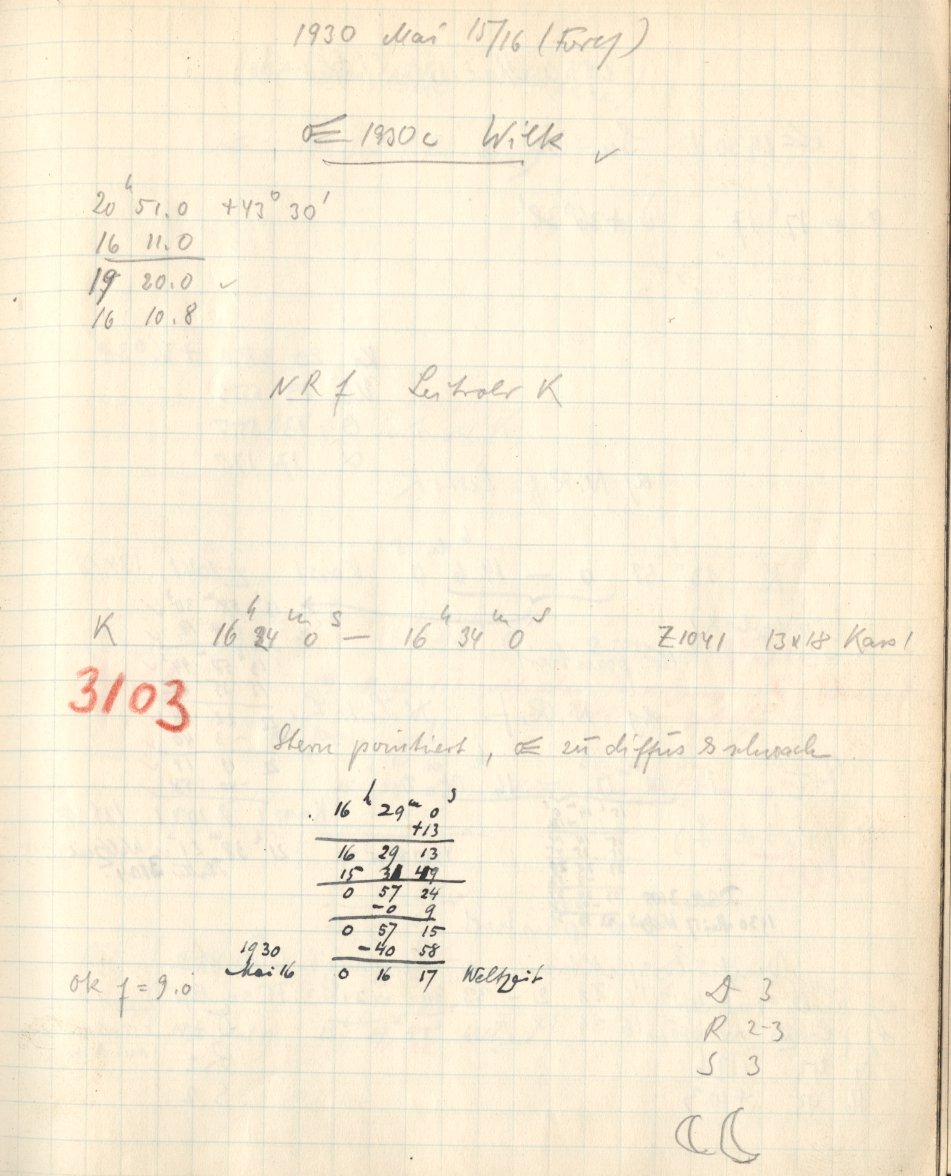 1930 Mai 15/16 (Forts)
☄ 1930c Wilk ✓
20ʰ 51.0 +43° 30'
16 11.0
19 20.0 ✓
16 10.8
NR f Leitrohr K
K 16ʰ 24ᵐ 0ˢ — 16ʰ 34ᵐ 0ˢ Z1041 13x18 Kass 1
3103
Stern pointiert, ☄ zu diffus & schwach
16ʰ 29ᵐ 0ˢ
+13
16 29 13
15 31 49
0 57 24
-0 9
0 57 15
-40 58
1930
Mai 16 0 16 17 Weltzeit
ok f = 9.0
D 3
R 2-3
S 3